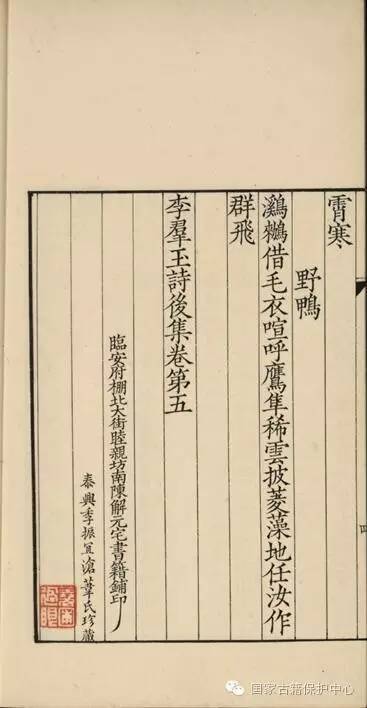 霄寒
野鴨
鸂鶒借毛衣喧呼鷹隼稀雲披菱藻地任汝作
群飛
李羣玉詩後集卷第五
臨安府棚北大街睦親坊南陳解元宅書籍鋪印
泰興季振宜滄葦氏珍藏
四
国家古籍保护中心